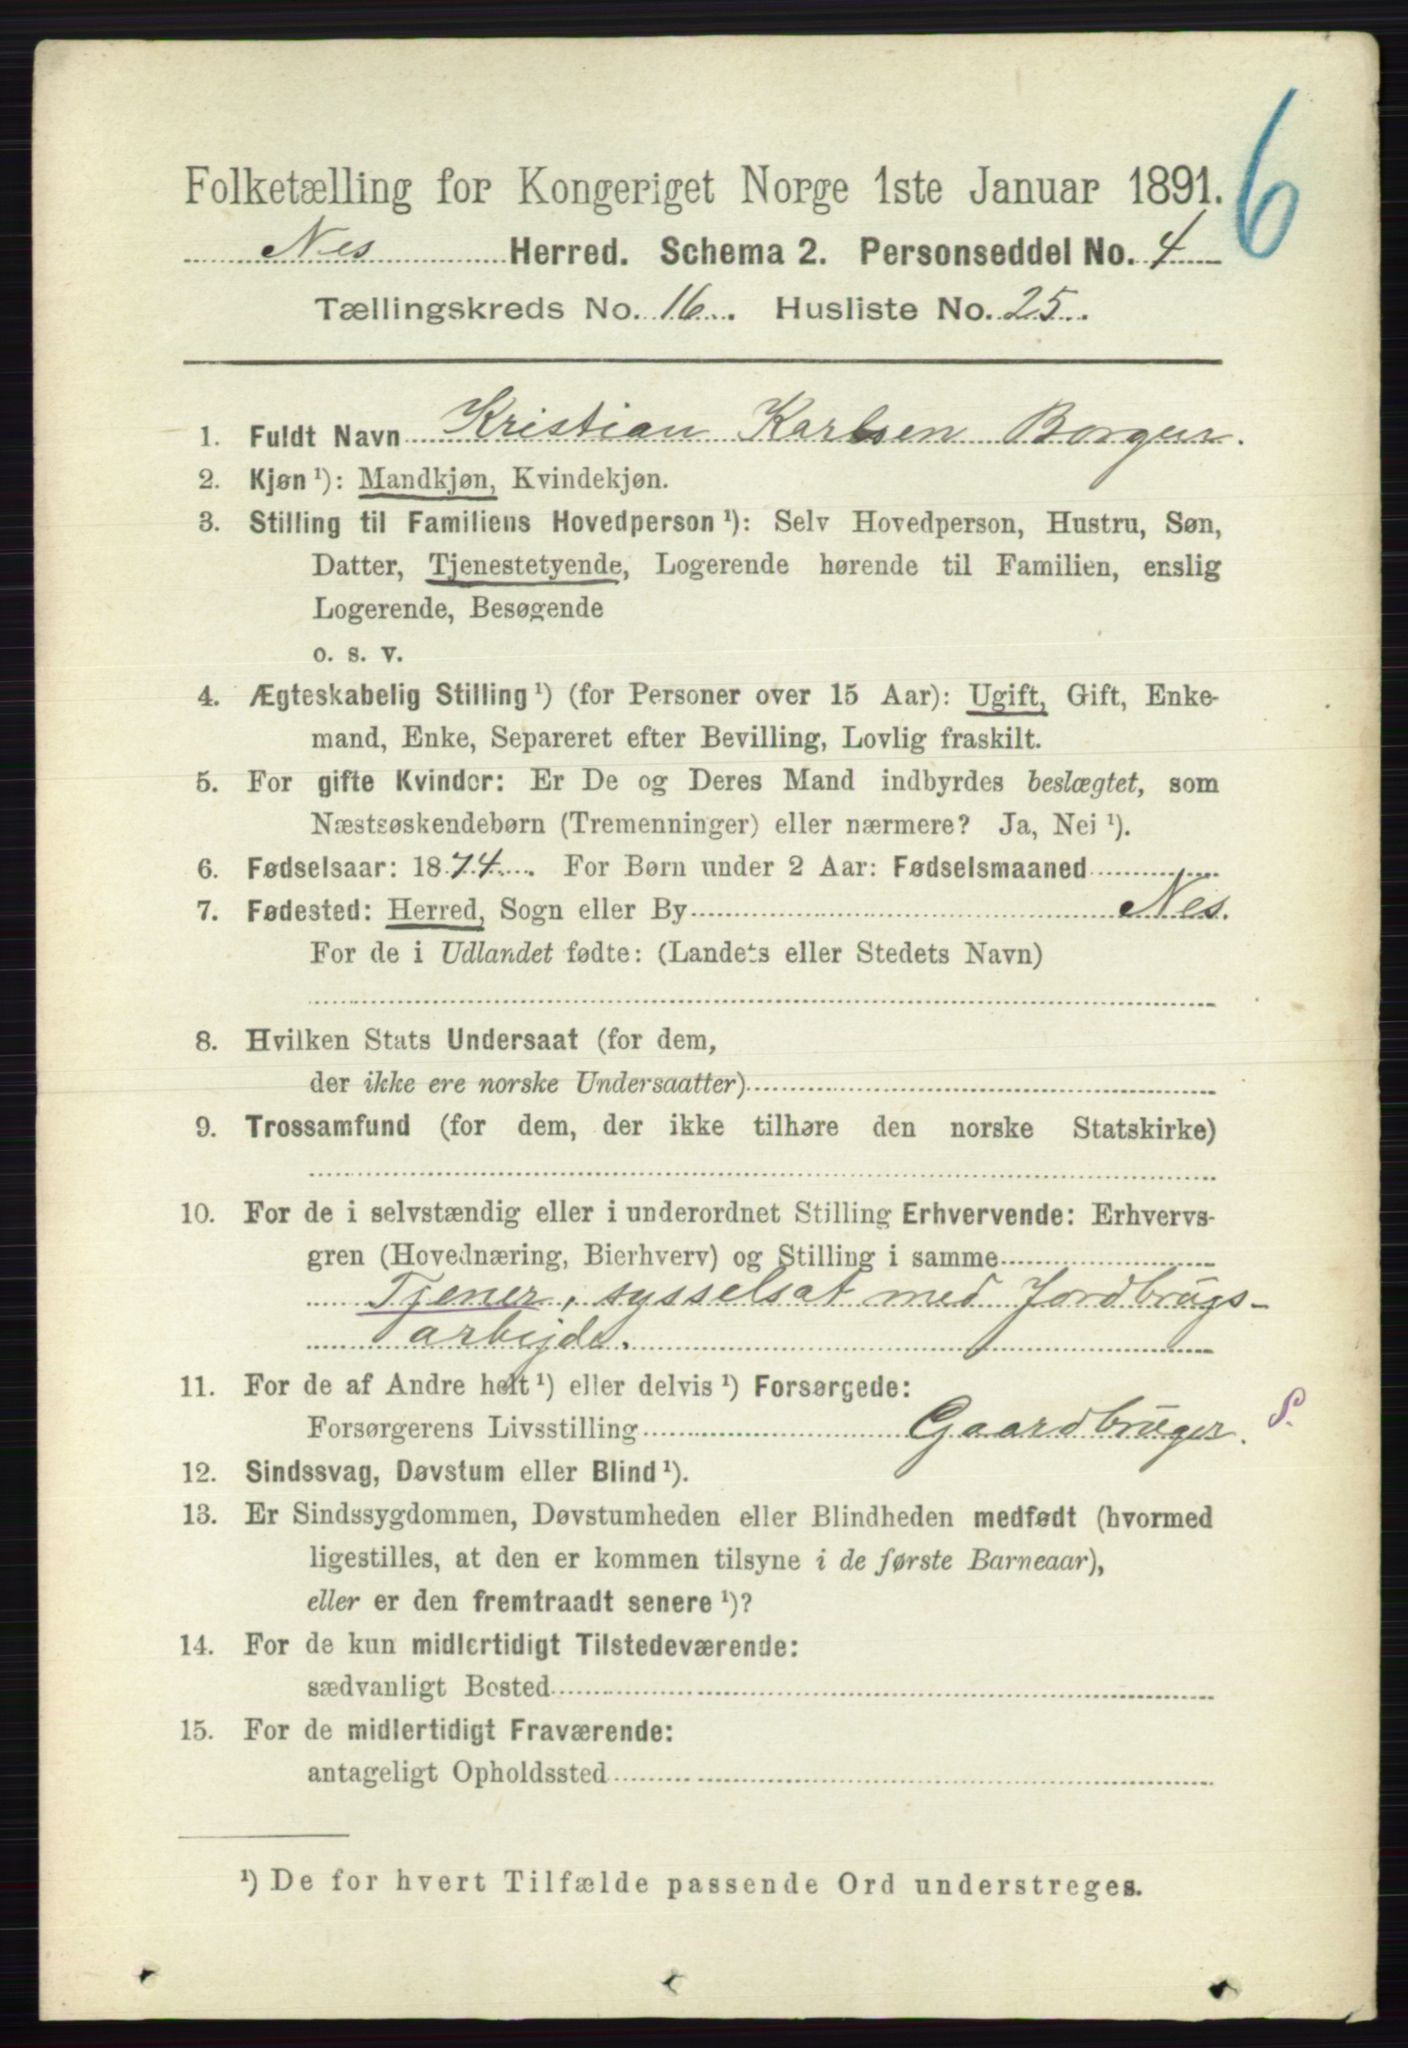 6
Folketælling for Kongeriget Norge 1ste Januar 1891.
Nes Herred. Schema 2. Personseddel No. 4
Tællingskreds No. 16. Husliste No. 25.
1. Fuldt Navn Kristian Karlsen Borgen.
2. Kjøn ¹): Mandkjøn, Kvindekjøn.
3. Stilling til Familiens Hovedperson ¹): Selv Hovedperson, Hustru, Søn,
Datter, Tjenestetyende, Logerende hørende til Familien, enslig
Logerende, Besøgende
o. s. v.
4. Ægteskabelig Stilling ¹) (for Personer over 15 Aar): Ugift, Gift, Enke-
mand, Enke, Separeret efter Bevilling, Lovlig fraskilt.
5. For gifte Kvinder: Er De og Deres Mand indbyrdes beslægtet, som
Næstsøskendebørn (Tremenninger) eller nærmere? Ja, Nei ¹).
6. Fødselsaar: 1874. For Børn under 2 Aar: Fødselsmaaned
7. Fødested: Herred, Sogn eller By Nes.
For de i Udlandet fødte: (Landets eller Stedets Navn)
8. Hvilken Stats Undersaat (for dem,
der ikke ere norske Undersaatter)
9. Trossamfund (for dem, der ikke tilhøre den norske Statskirke)
10. For de i selvstændig eller i underordnet Stilling Erhvervende: Erhvervs-
gren (Hovednæring, Bierhverv) og Stilling i samme
Tjener, sysselsat med Jordbrugs-
arbejde.
11. For de af Andre helt ¹) eller delvis ¹) Forsørgede:
Forsørgerens Livsstilling Gaardbruger.
12. Sindssvag, Døvstum eller Blind ¹).
13. Er Sindssygdommen, Døvstumheden eller Blindheden medfødt (hvormed
ligestilles, at den er kommen tilsyne i de første Barneaar),
eller er den fremtraadt senere ¹)?
14. For de kun midlertidigt Tilstedeværende:
sædvanligt Bosted
15. For de midlertidigt Fraværende:
antageligt Opholdssted
¹) De for hvert Tilfælde passende Ord understreges.